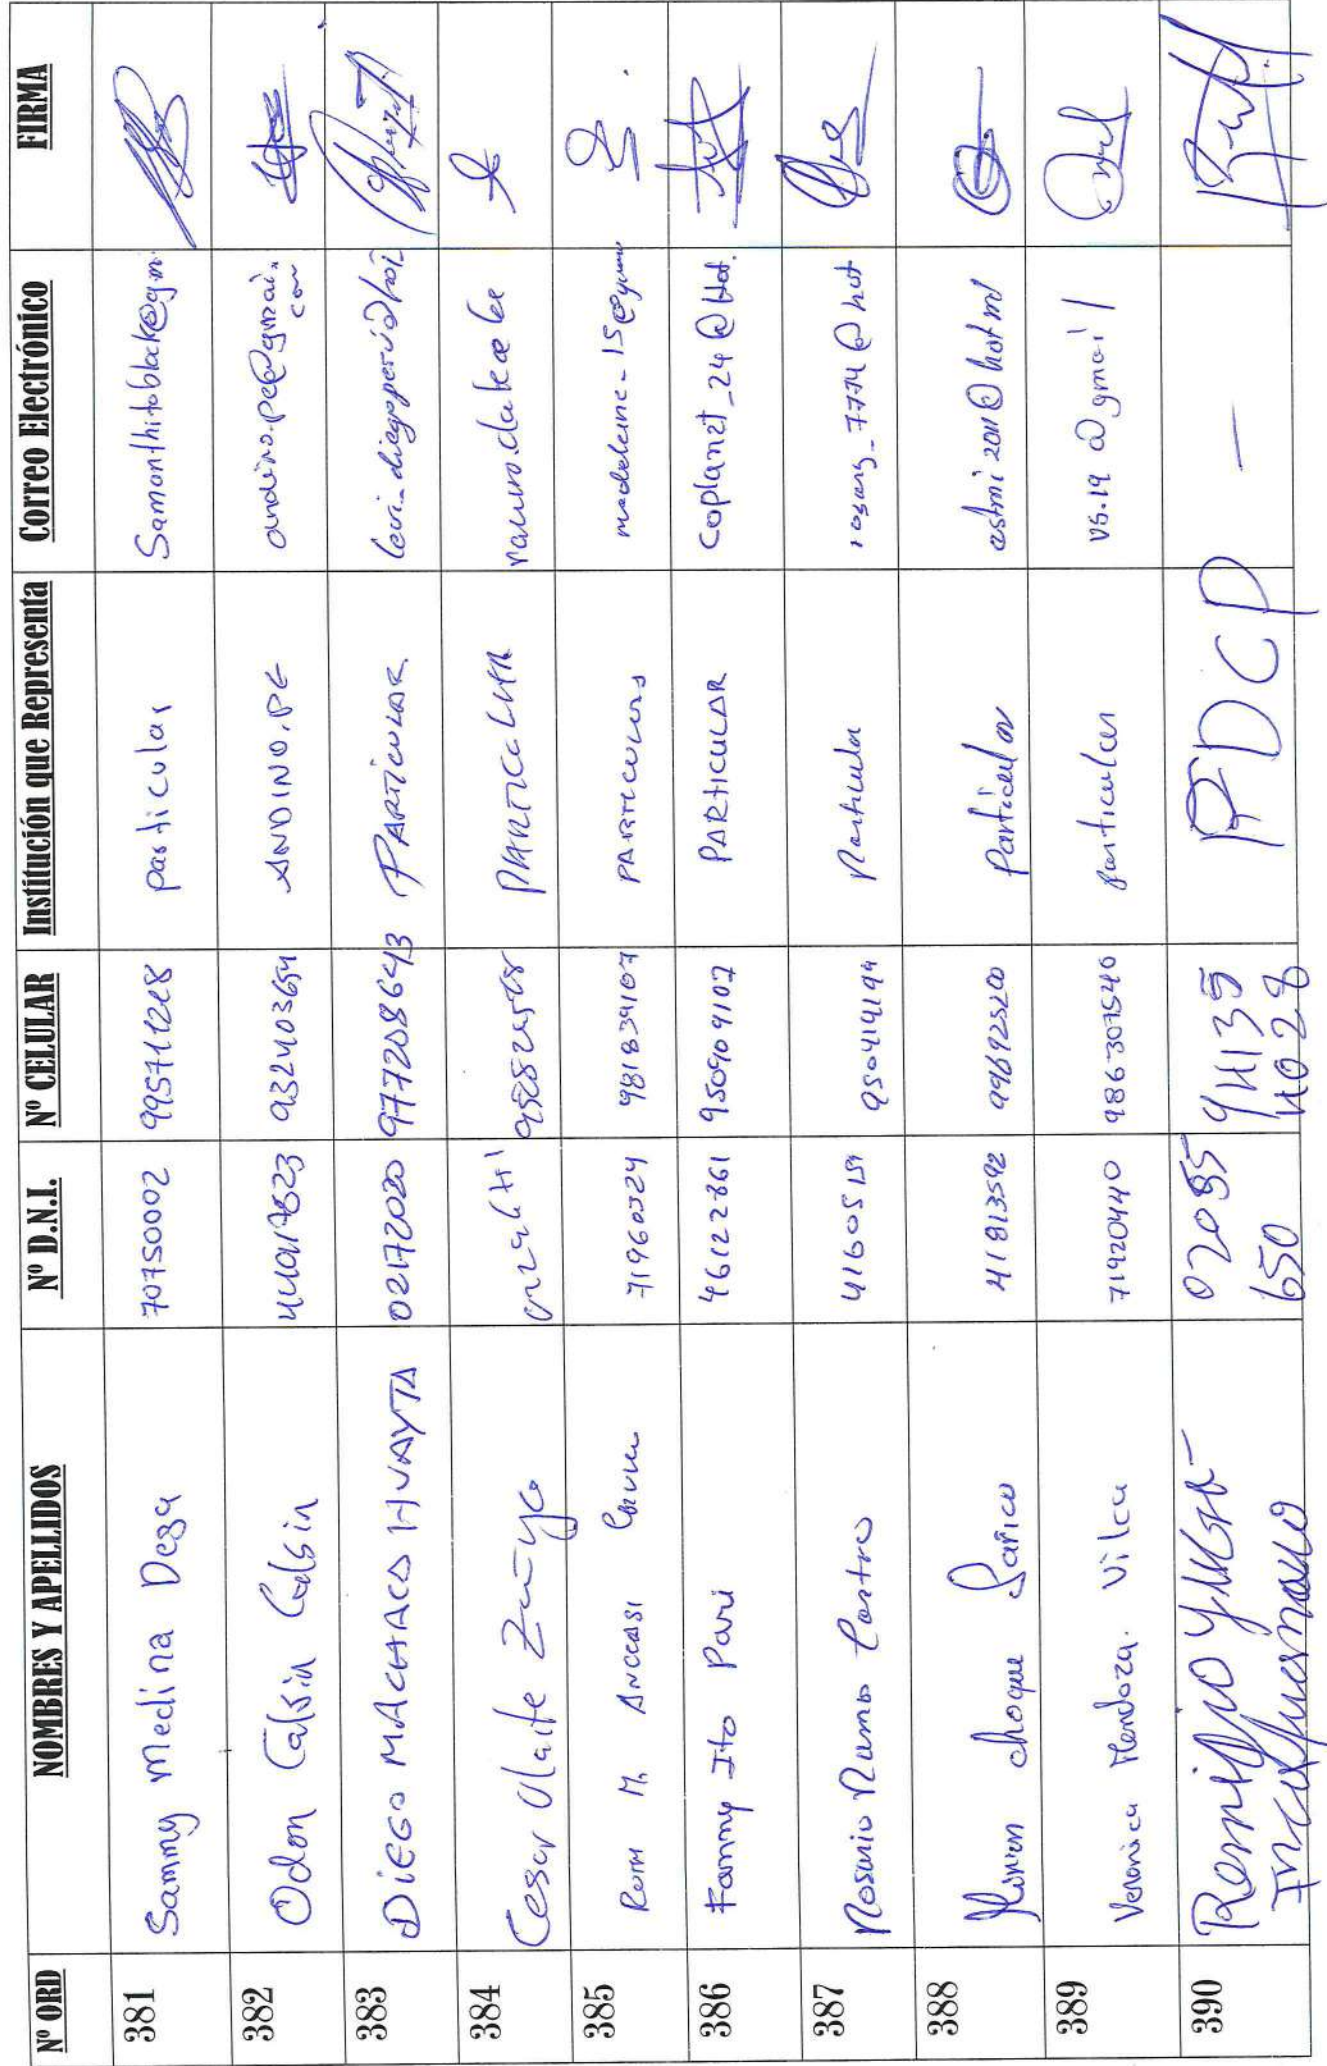 Nº ORD NOMBRES Y APELLIDOS Nº D.N.I. Nº CELULAR Institución que Representa Correo Electrónico FIRMA
381 Sammy Medina Deza 70750002 995711228 particular Samanthitablack@gm
382 Odon Calsin Calsin 932403654 ANDINO.PE andino.pe@gmai.
com
383 DIEGO MACHACA HUAYTA 02172020 977208643 PARTICULAR
384 Cesar Olaite Zuñiga PARTICULAR
385 Ruth M. Anccasi 71960324 981834107 PARTICULAR madeleine_15@
386 Fanny Ito Pari 46122861 950909102 PARTICULAR coplanet_24@Hot.
387 Rosario Ramos Castro 41605154 950414199 Particular rosang_7774@hot
388 Miriam choque Pañico 41813592 996925200 Particular astmi2011@hotml
389 Veronica Mendoza. Vilca 71920440 986307540 particular vs.19@gmail
390 02055 94135
650 4028 PDCP —